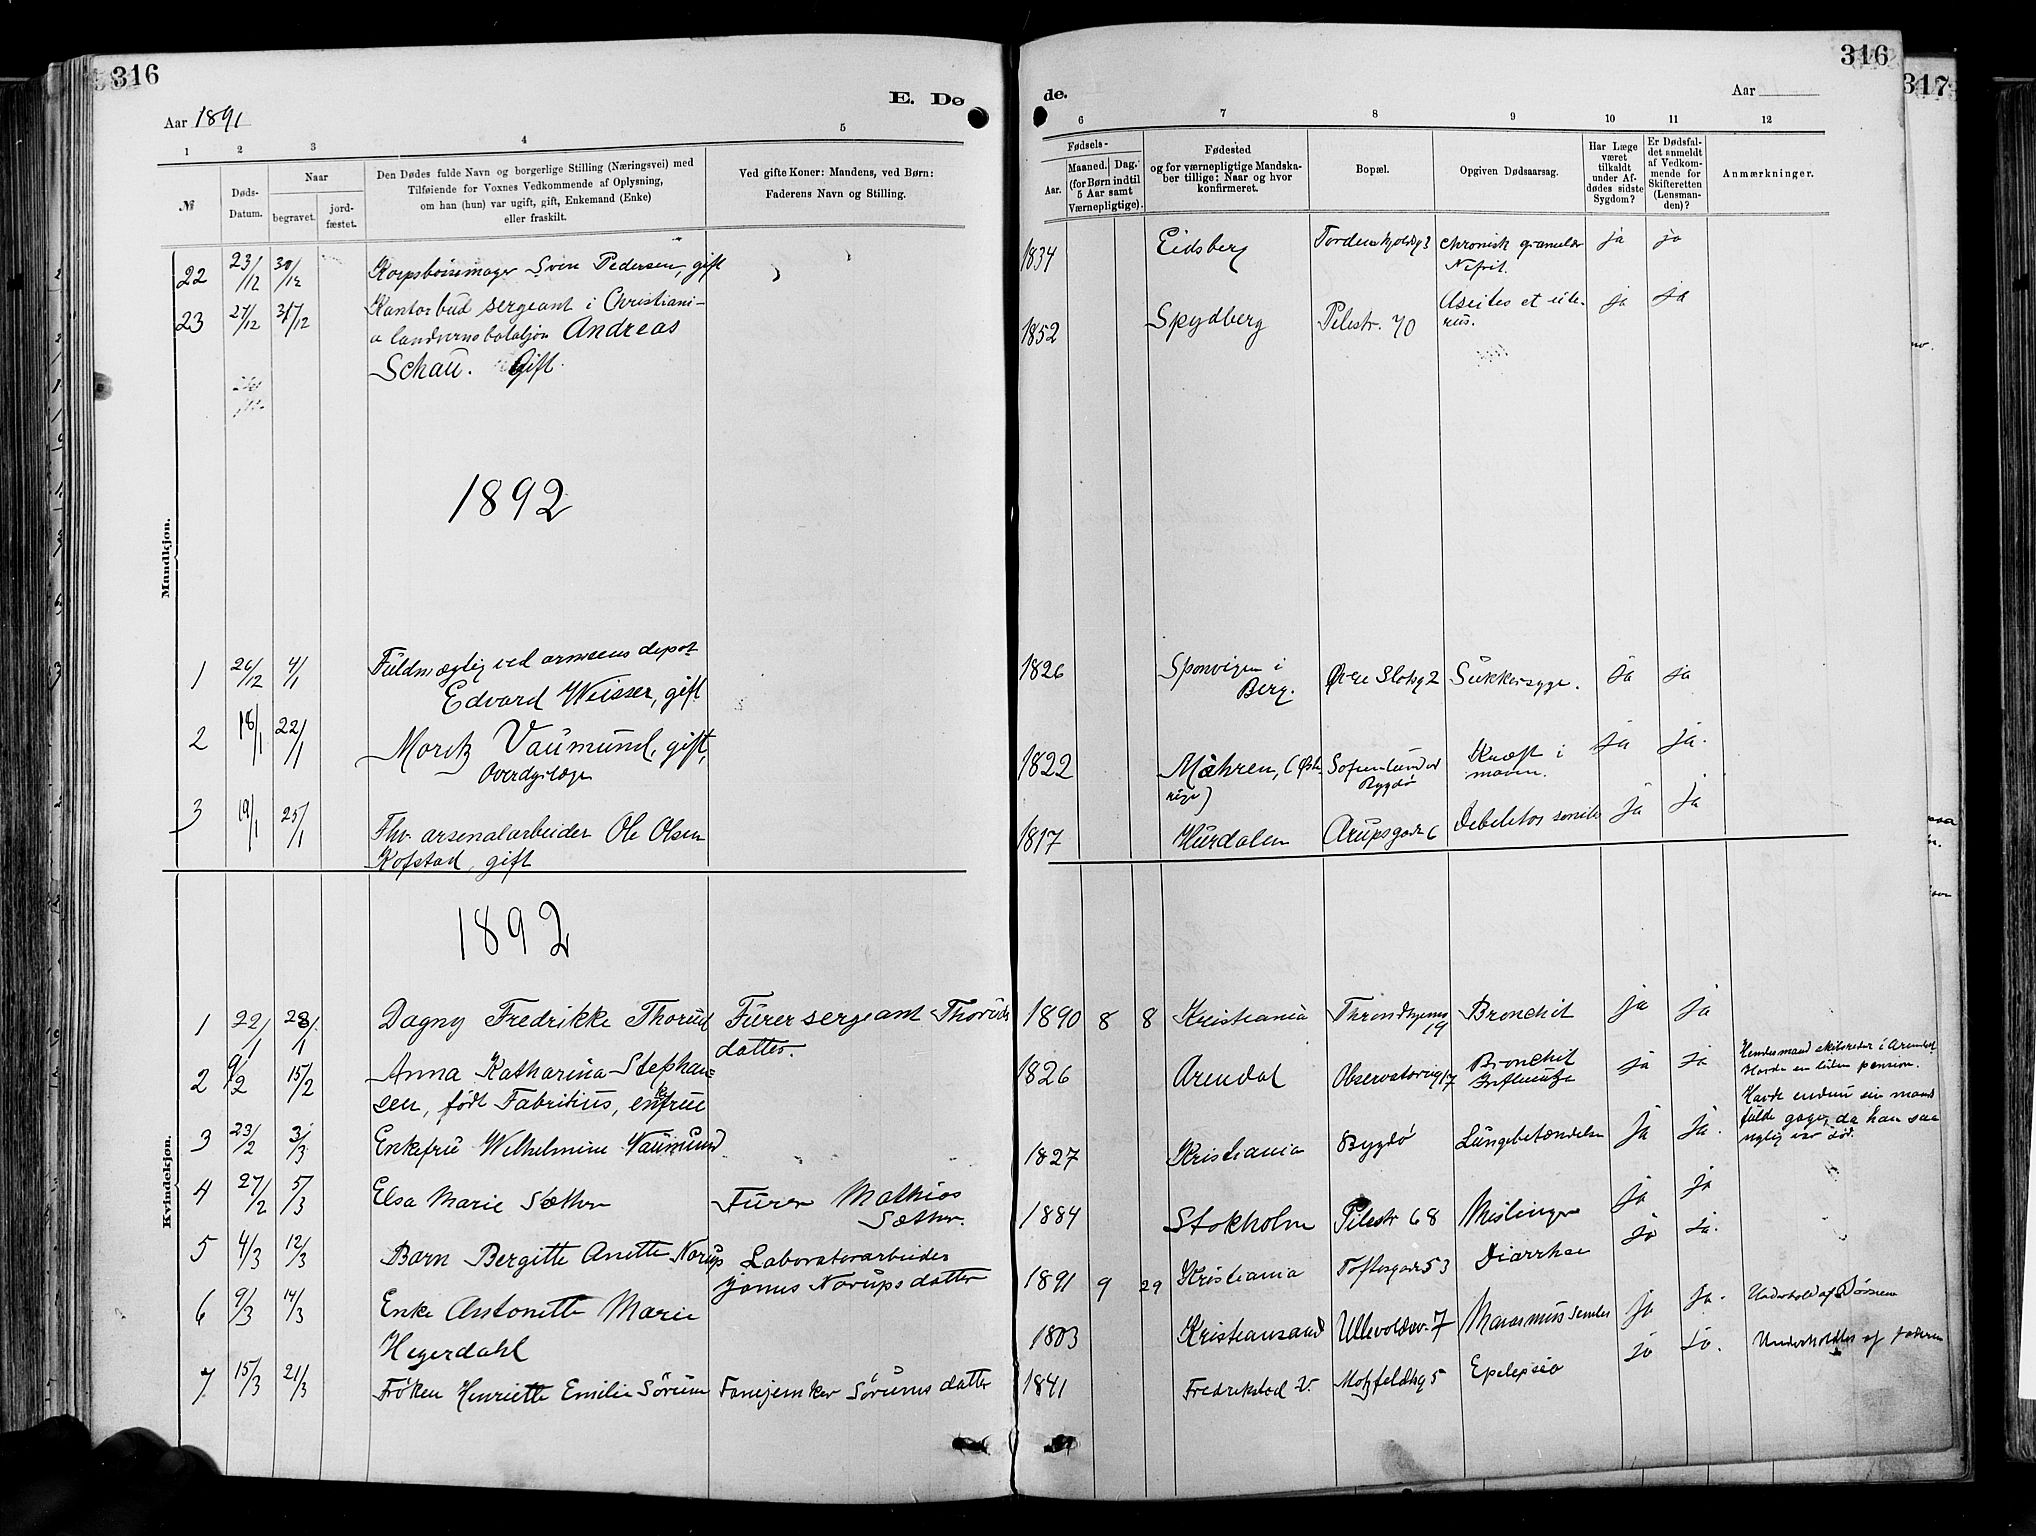 316
E. Dø
Aar 1891
1 2 3 4 5
№
Døds-
Datum.
Naar
begravet.
jord-
fæstet.
Den Dødes fulde Navn og borgerlige Stilling (Næringsvei) med
Tilføiende for Voxnes Vedkommende af Oplysning,
om han (hun) var ugift, gift, Enkemand (Enke)
eller fraskilt.
Ved gifte Koner: Mandens, ved Børn:
Faderens Navn og Stilling.
Mandkjøn.
22 23/12 30/12 Korpsbøssemager Sven Pedersen, gift
23 27/12 31/12 Kontorbud sergeant i Christiani-
a landvernsbataljon Andreas
Schau. Gift.
1892
1 26/12 4/1 Fuldmægtig ved armeens depot
Edvard Weisser, gift
2 18/1 22/1 Moritz Vaumund, gift,
3 19/1 25/1 Fhv. arsenalarbeider Ole Olsen
Kofstad, gift
Kvindekjøn.
1892
1 22/1 28/1 Dagny Fredrikke Thorud Furersergeant Thoruds
datter.
2 9/2 15/2 Anna Katharina Stephan=
sen, født Fabritius, enkefrue
3 23/2 3/3 Enkefru Wilhelmine Naumund
4 27/2 5/3 Elsa Marie Sæther Furer Mathias
Sæther.
5 4/3 12/3 Barn Bergitte Anette Norup Laboratorarbeider
Norups datter
6 9/3 14/3 Enke Antonette Marie
Hegerdahl
7 15/3 21/3 Frøken Henriette Emilie Sørum Fanejunker Sørums datter
316
317
de.
Aar
6 7 8 9 10 11 12
Fødsels-
Aar.
Maaned. Dag.
(for Børn indtil
5 Aar samt
Værnepligtige).
Fødested
og for værnepligtige Mandska-
ber tillige: Naar og hvor
konfirmeret.
Bopæl.
Opgiven Dødsaarsag.
Har Læge
været
tilkaldt
under Af-
dødes sidste
Sygdom?
Er Dødsfal-
det anmeldt
af Vedkom-
mende for
Skifteretten
(Lensman-
den)?
Anmærkninger.
1834 Eidsberg Tordenskjoldsg 3 chronisk granulær ja ja
Nefrit.
1852 Spydberg Pilestr. 70 Ascites et icte- ja ja
rus.
1826 Sponvigen i Øvre Slotsg 2 Sukkersyge. ja ja
Berg.
1822 Mähren, (Øst- Kræft i ja ja.
rige) Bygdø maven.
1817 Hurdalen Arupsgade 6 Debilitas senilis ja ja
1890 8 8 Kristiania Throndhjemsv Bronchit ja ja
19
1826 Arendal Observatorieg 17 Bronchit ja ja Hendes mand skibsreder i Arendal.
Influentza Havde en liden pension.
1827 Kristiania Bygdø Lungebetændelse ja ja. Havde endnu sin mands
fulde gage, da han saa
nylig var død.
1884 Stokholm Pilestr 68 Meslinger ja ja
1891 9 29 Kristiania Toftesgade 53 Diarrhae ja ja.
1803 Kristiansand Ullevoldsv. 7 Marasmus senilis ja ja. Underhold af Børnene
1841 Fredrikstad V. Motzfeldtsg 5 Epilepsia ja ja. Underholdtes af faderen